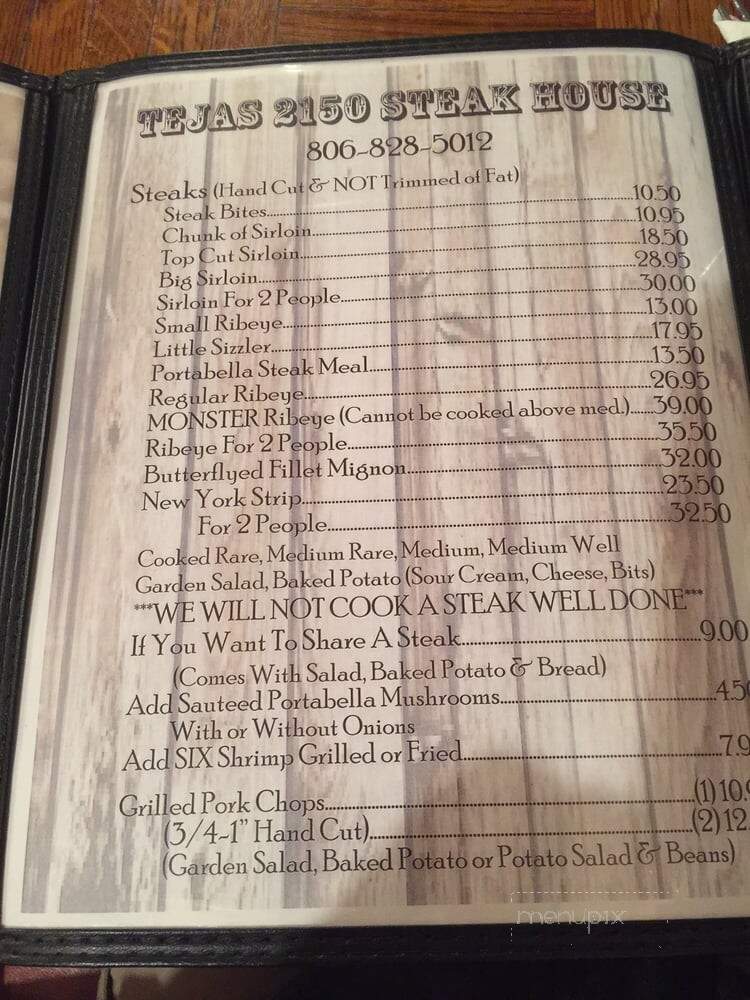 TEJAS 2150 STEAK HOUSE
806-828-5012
Steaks (Hand Cut & NOT Trimmed of Fat)
Steak Bites 10.50
Chunk of Sirloin 10.95
Top Cut Sirloin 18.50
Big Sirloin 28.95
Sirloin For 2 People 30.00
Small Ribeye 13.00
Little Sizzler 17.95
Portabella Steak Meal 13.50
Regular Ribeye 26.95
MONSTER Ribeye (Cannot be cooked above med.) 39.00
Ribeye For 2 People 35.50
Butterflyed Fillet Mignon 32.00
New York Strip 23.50
For 2 People 32.50
Cooked Rare, Medium Rare, Medium, Medium Well
Garden Salad, Baked Potato (Sour Cream, Cheese, Bits)
***WE WILL NOT COOK A STEAK WELL DONE***
If You Want To Share A Steak 9.00
(Comes With Salad, Baked Potato & Bread)
Add Sauteed Portabella Mushrooms 4.50
With or Without Onions
Add SIX Shrimp Grilled or Fried 7.9
Grilled Pork Chops (1) 10.9
(3/4-1" Hand Cut) (2) 12.
(Garden Salad, Baked Potato or Potato Salad & Beans)
menupix